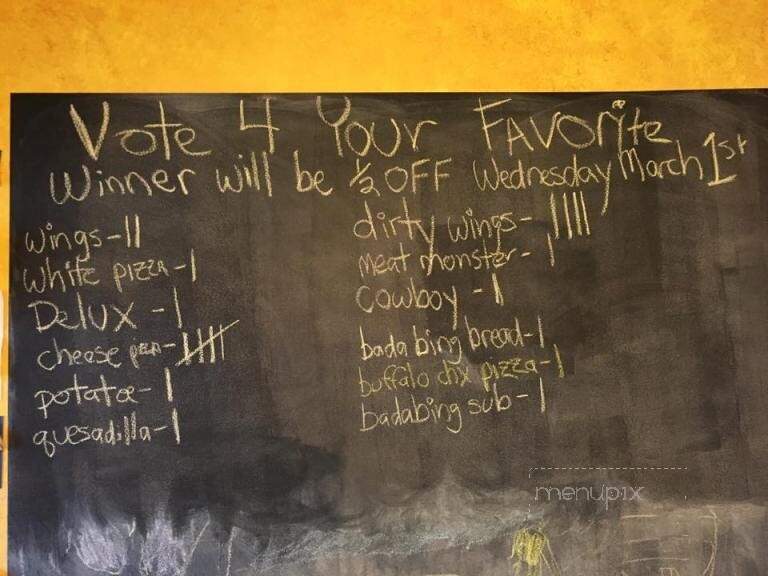 Vote 4 Your Favorite
Winner will be ½ OFF Wednesday March 1st
wings - II
white pizza - I
Delux - I
cheese pizza - IIII
potatoe - I
quesadilla - I
dirty wings - IIII
meat monster - I
Cowboy - I
bada bing bread - I
buffalo chx pizza - I
badabing sub - I
menupix